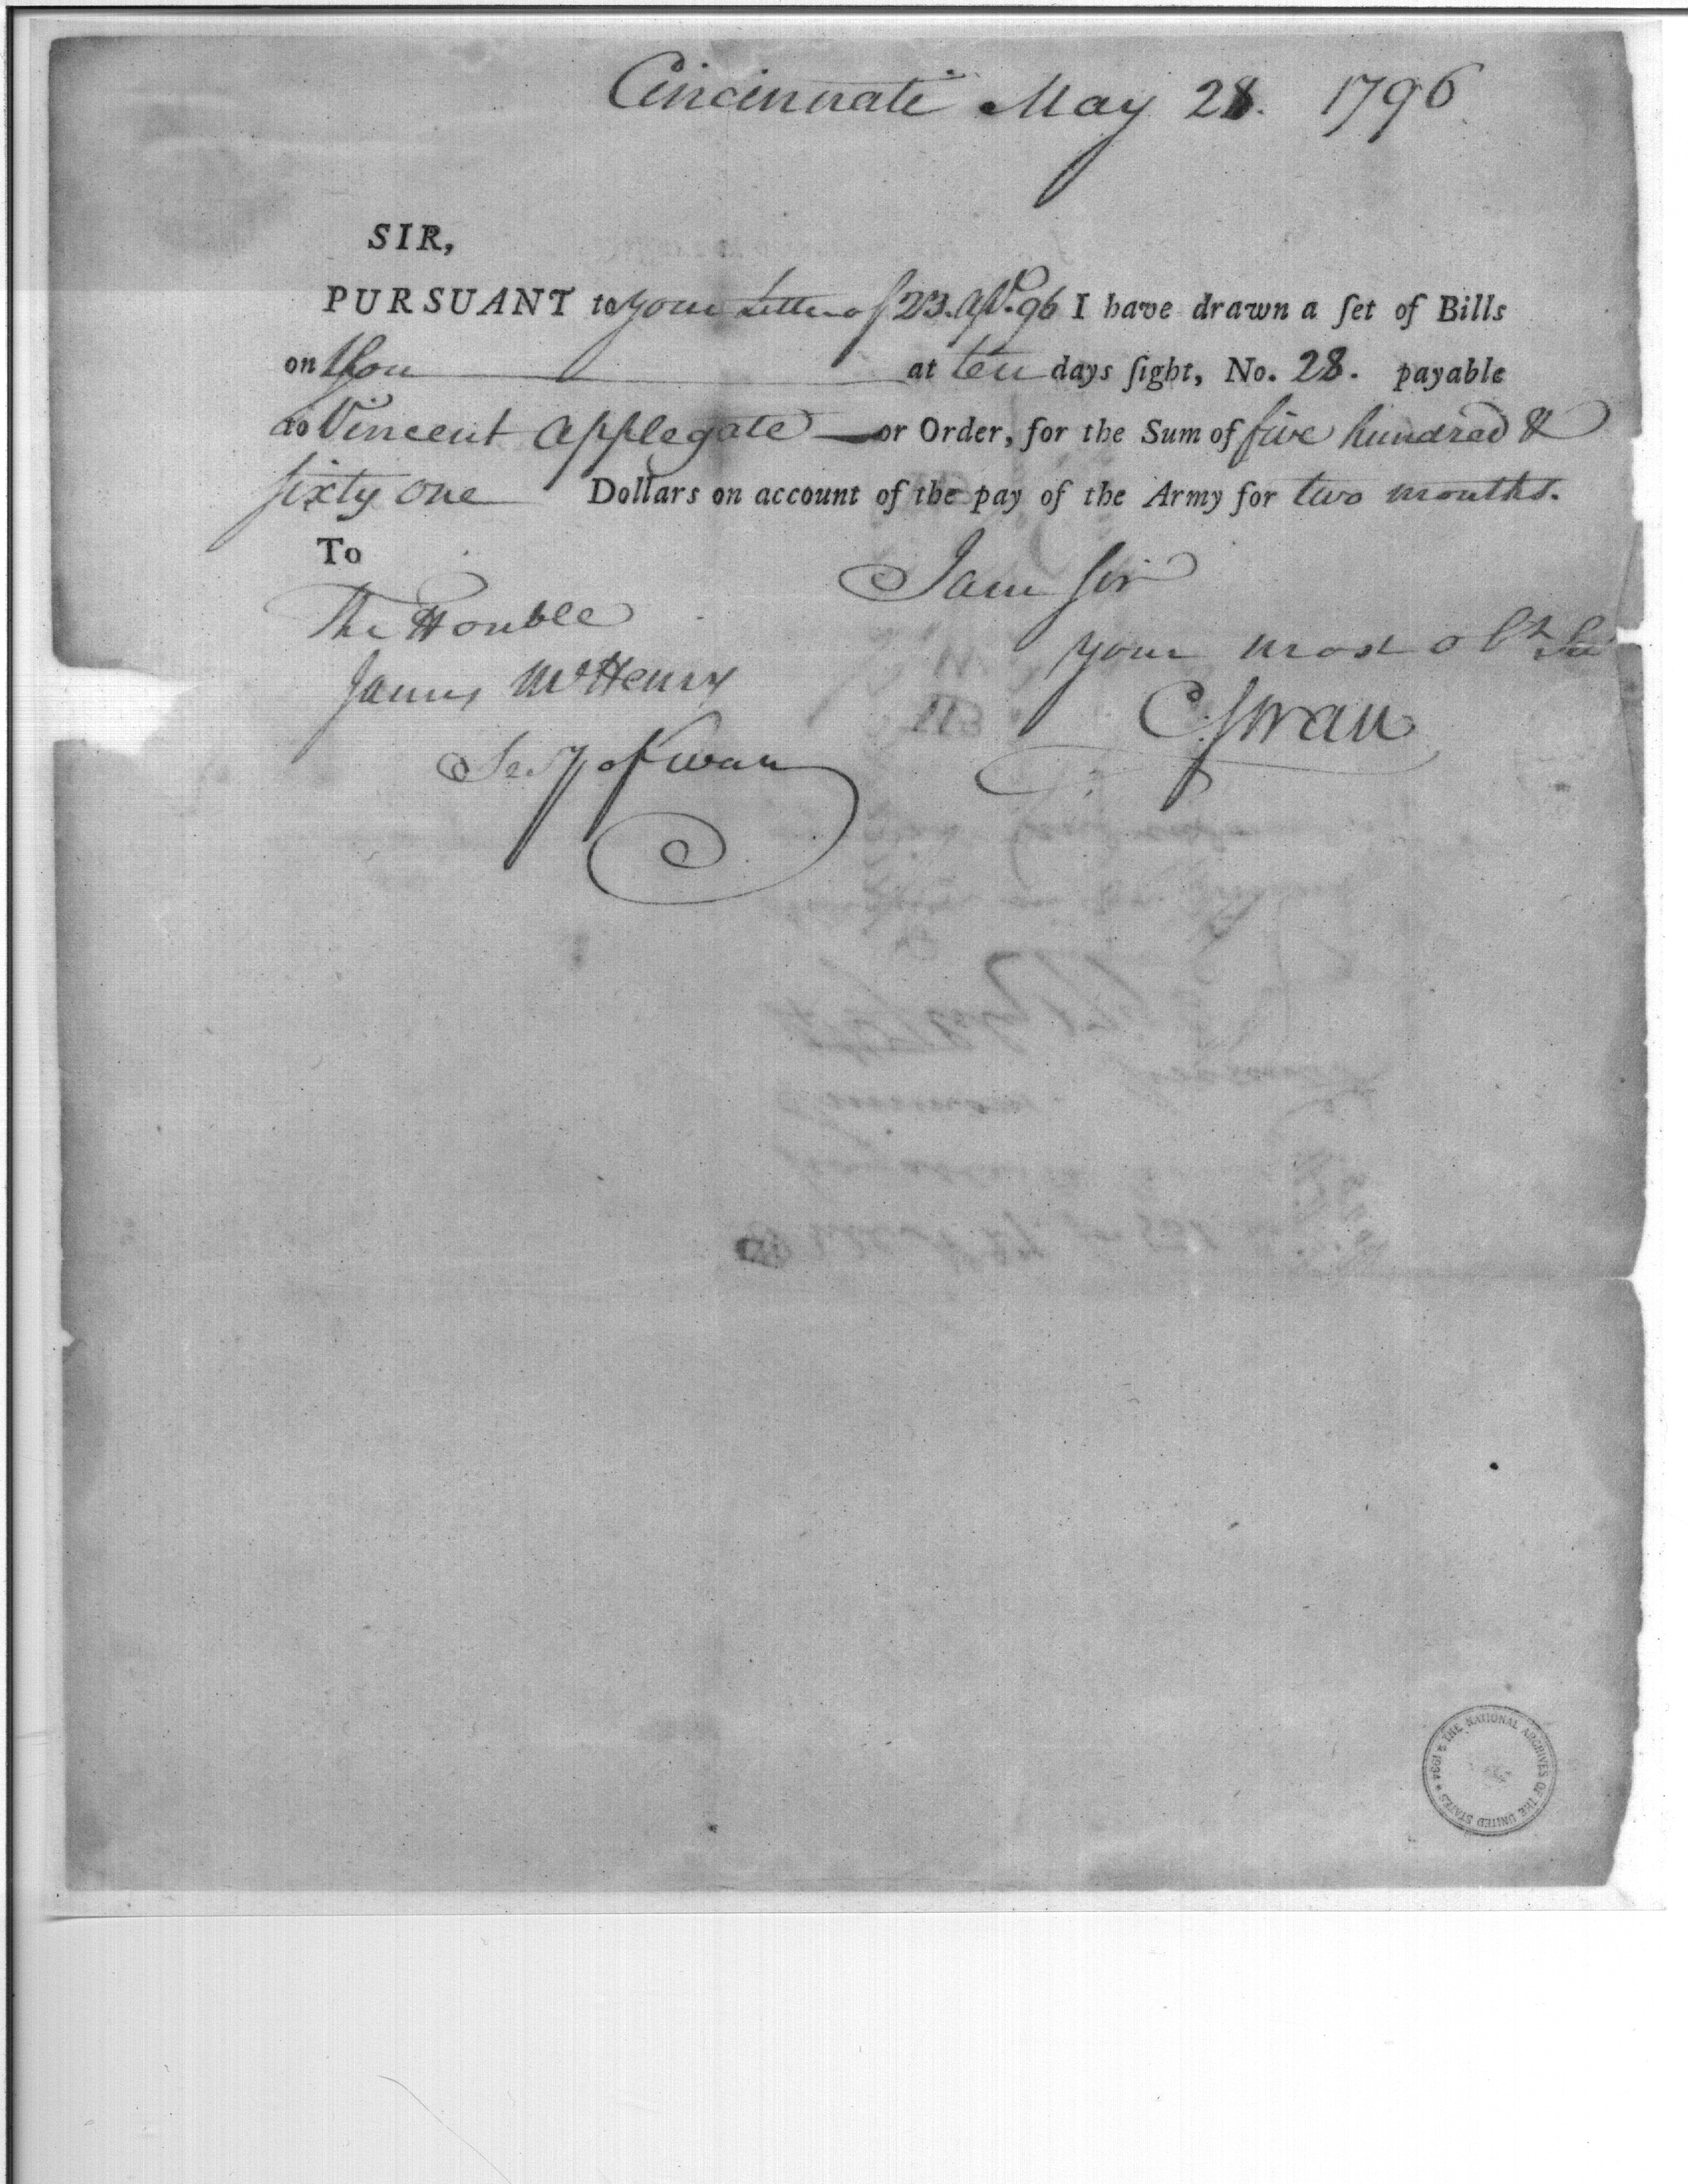 Cincinnati May 28. 1796
SIR,
PURSUANT to your Letter of 23. Apl. 96 I have drawn a ſet of Bills
on You at ten days ſight, No. 28. payable
to Vincent Applegate or Order, for the Sum of five hundred &
sixty one Dollars on account of the pay of the Army for two months.
To
I am Sir
The Honble
your most obt Sr
James McHenry
C Swan
Secy of War
THE NATIONAL ARCHIVES OF THE UNITED STATES * 1934 *